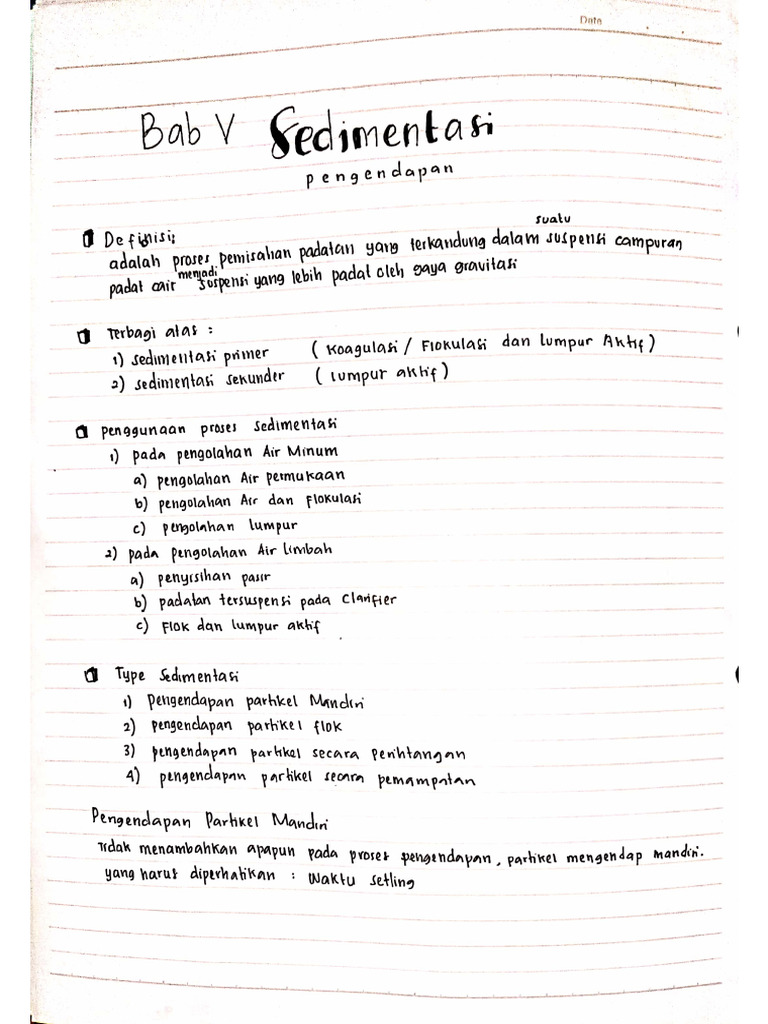 Date
Bab V Sedimentasi
pengendapan
Definisi:
suatu
adalah proses pemisahan padatan yang terkandung dalam suspensi campuran
padat cair menjadi suspensi yang lebih padat oleh gaya gravitasi
Terbagi atas :
1) sedimentasi primer (Koagulasi / Flokulasi dan lumpur Aktif)
2) sedimentasi sekunder (lumpur aktif)
penggunaan proses sedimentasi
1) pada pengolahan Air Minum
a) pengolahan Air permukaan
b) pengolahan Air dan flokulasi
c) pengolahan lumpur
2) pada pengolahan Air limbah
a) penyisihan pasir
b) padatan tersuspensi pada Clarifier
c) Flok dan lumpur aktif
Type Sedimentasi
1) Pengendapan partikel Mandiri
2) pengendapan partikel flok
3) pengendapan partikel secara perihtangan
4) pengendapan partikel secara pemampatan
Pengendapan Partikel Mandiri
Tidak menambahkan apapun pada proses pengendapan, partikel mengendap mandiri.
yang harus diperhatikan : Waktu setling